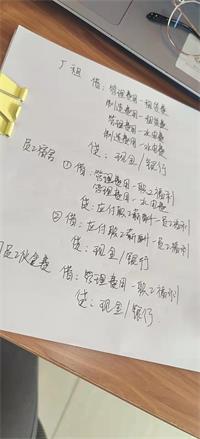 厂租 借：管理费用-租赁费
制造费用-租赁费
管理费用-水电费
制造费用-水电费
贷：现金/银行
员工宿舍 ①借：管理费用-职工福利
管理费用-水电费
贷：应付职工薪酬-员工福利
②借：应付职工薪酬-员工福利
贷：现金/银行
员工伙食费 借：管理费用-职工福利
贷：现金/银行